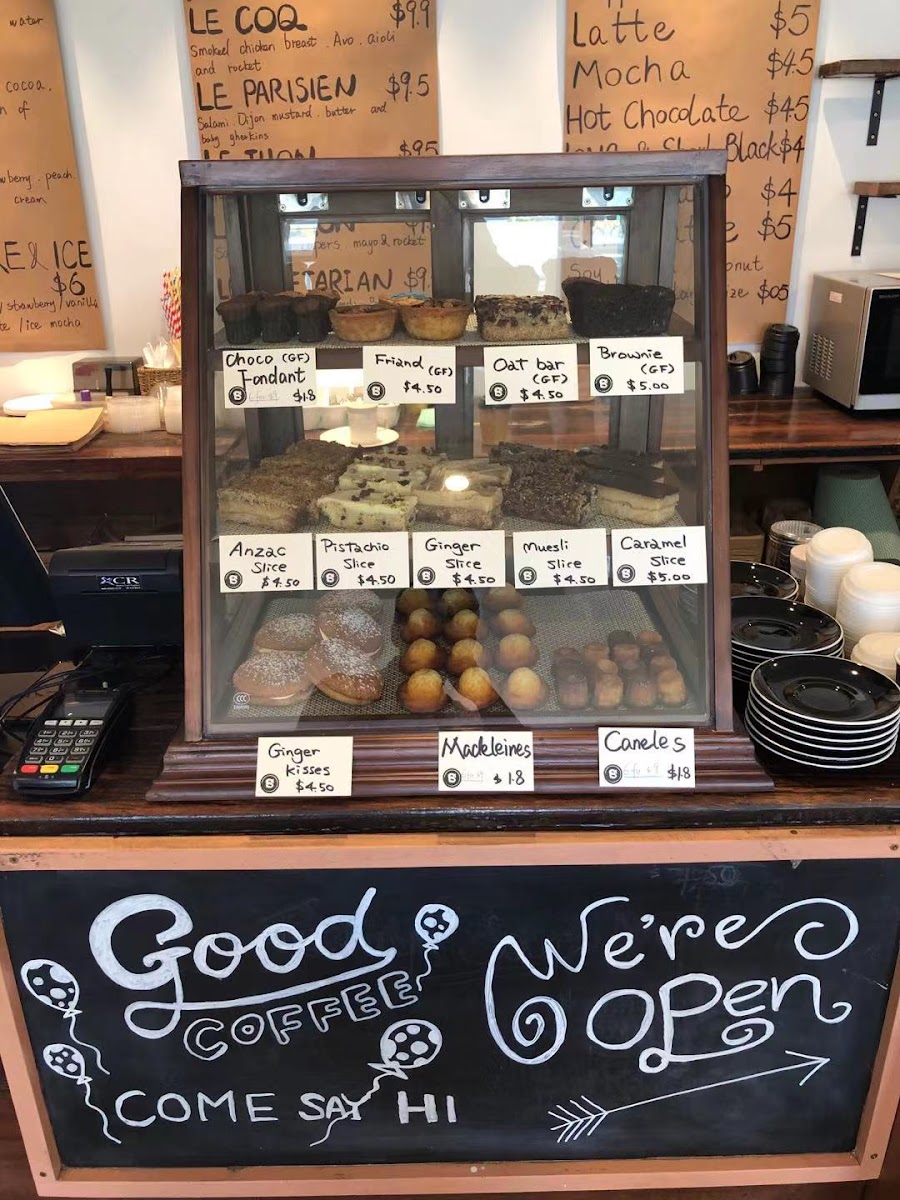 water
cocoa.
n of
wberry . peach.
cream
KE & ICE
$6
/ stawberry / vanilla
te / ice mocha
LE COQ $9.9
Smoked chicken breast . Avo . aioli
and rocket
LE PARISIEN $9.5
Salami . Dijon mustard . butter and
baby gherkins
LE THON $9.5
pers . mayo & rocket
ETARIAN $9.
Latte $5
Mocha $4.5
Hot Chocolate $4.5
Long & Short Black $4
$4
$5
Soy
onut
ize $0.5
Choco (GF)
Fondant
B 6 for $9 $1.8
Friand (GF)
B $4.50
Oat bar
(GF)
B $4.50
Brownie
(GF)
B $5.00
Anzac
Slice
B $4.50
Pistachio
Slice
B $4.50
Ginger
Slice
B $4.50
Muesli
Slice
B $4.50
Caramel
Slice
B $5.00
CCC
Ginger
kisses
B $4.50
Madeleines
B 6 for $9 $1.8
Caneles
B 6 for $9 $1.8
CR
Good
COFFEE
COME SAY HI
We're
Open